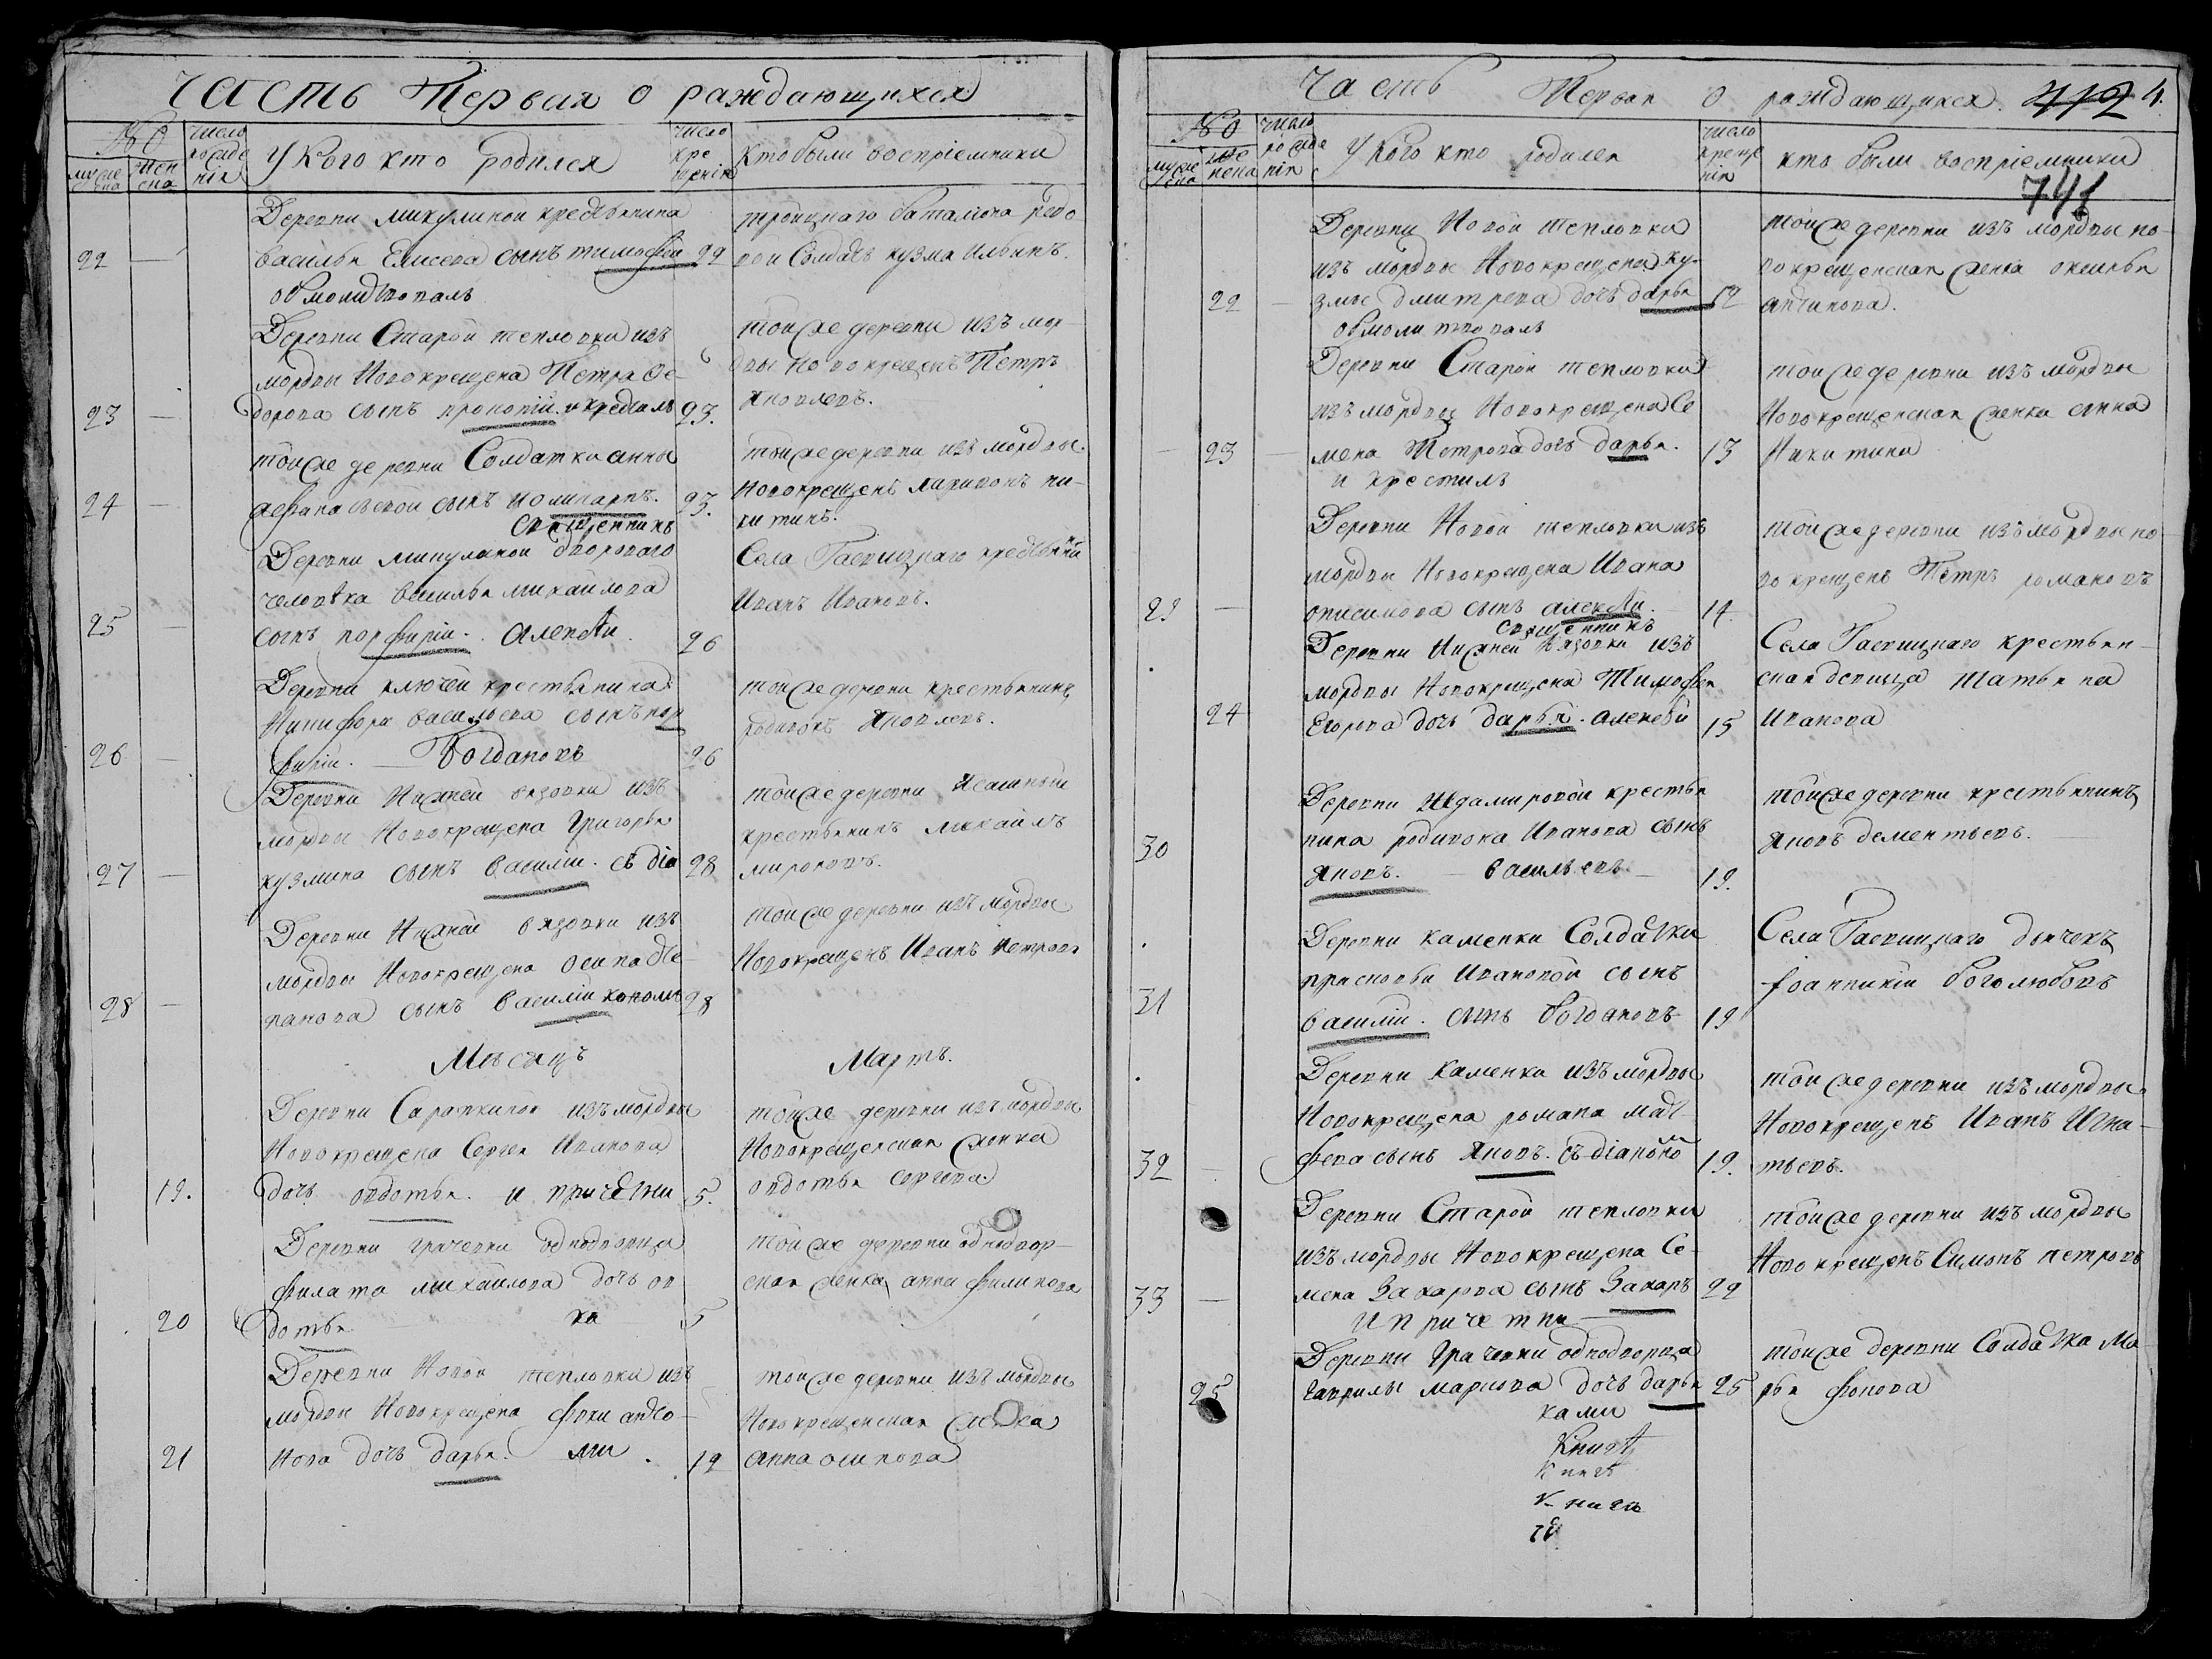 Часть Первая о раждающихся
№
число рожде нія
У кого кто родился
число кре щенія
Кто были воспріемники
муже ска
жен ска
Деревни микулиной крестьянина
22 — василья Елисеева сынъ тимофей 22
обмолитвовалъ
троицкаго баталіона редо
вой Солдатъ кузма Ильинъ.
Деревни Старой тепловки изъ
мордвы Новокрещена Петра Фе-
23 — дорова сынъ прокопій. и крестилъ 23.
тойже деревни изъ мор-
двы новокрещенъ Петръ
Яковлевъ.
тойже деревни Солдатки анны
24 — афанасьевой сынъ поликарпъ. 23.
священникъ
тойже деревни изъ мордвы
Новокрещенъ ларивонъ ни-
китинъ.
Деревни микулиной двороваго
человѣка василья михаилова
25 — сынъ порфирій. алексѣй 26
Села Гаврицкаго крестьянинъ
Иванъ Ивановъ.
Деревни ключей крестьянина
Никифора васильева сынъ пор
26 — фирій. — Богдановъ 26
тойже деревни крестьянинъ
родивонъ Яковлевъ.
Деревни Нижней вязовки изъ
мордвы Новокрещена Григорья
27 — кузмина сынъ василій. съ діа 28
тойже деревни Ясашный
крестьянинъ михаилъ
мироновъ.
Деревни Нижней вязовки изъ
мордвы Новокрещена осипа Сте-
28 — панова сынъ василій кономъ 28
тойже деревни изъ мордвы
Новокрещенъ Иванъ петровъ
Мѣсяцъ Мартъ.
Деревни Сараткиной изъ мордвы
Новокрещена Сергея Иванова
19. дочь овдотья. и причетни 5.
тойже деревни изъ мордвы
Новокрещенская жонка
овдотья сергеева
Деревни грачевки однодворца
филата михаилова дочь ов
20 дотья ка 5
тойже деревни однодвор-
ская женка анна филипова
Деревни Новой тепловки изъ
мордвы Новокрещена
21 нова дочь дарья. ми. 12
тойже деревни изъ мордвы
Новокрещенская жонка
анна осипова
Часть Первая о раждающихся 712 4.
№
число рожде нія
У кого кто родился
число креще нія
кто были воспріемники
муже ска
же нска
741
Деревни Новой тепловки
изъ мордвы Новокрещена ку-
22 — змы дмитрева дочь дарья 12
обмолитвовалъ
тойже деревни изъ мордвы но-
вокрещенская женка
антипова.
Деревни Старой тепловки
изъ мордвы Новокрещена Се
23 — мена Петрова дочь дарья. 13
и крестилъ
тойже деревни изъ мордвы
Новокрещенская женка анна
Никитина
Деревни Новой тепловки изъ
мордвы Новокрещена Ивана
29 — онисимова сынъ алексѣй. 14.
священникъ
тойже деревни изъ мордвы но
вокрещенъ Петръ романовъ
Деревни Нижней вязовки изъ
мордвы Новокрещена Тимофея
24 Егорова дочь дарья. алексѣй 15
Села Гаврицкаго крестьян-
ская девица татьяна
Иванова
Деревни Шдамировой крестья
30 нина родивона Иванова сынъ
Яковъ. — васильевъ — 19.
тойже деревни крестьянинъ
Яковъ дементьевъ.
Деревни каменки Солдатки
прасковьи Ивановой сынъ
31 василій. сынъ Богдановъ 19
Села Гаврицкаго дьячекъ
Іоанникій боголюбовъ
Деревни каменки изъ мордвы
Новокрещена романа мат-
32 — феева сынъ Яковъ. съ діаконо 19.
тойже деревни изъ мордвы
Новокрещенъ Иванъ Игна-
тьевъ.
Деревни Старой тепловки
изъ мордвы Новокрещена Се-
33 — мена Захарова сынъ Захаръ 22
и причетни
тойже деревни изъ мордвы
Новокрещенъ Симонъ петровъ
Деревни Грачевки однодворца
25 гаврилы маркова дочь дарья 25
ками
тойже деревни Солдатка Ма
рья фокова
Книгѣ
Книгѣ